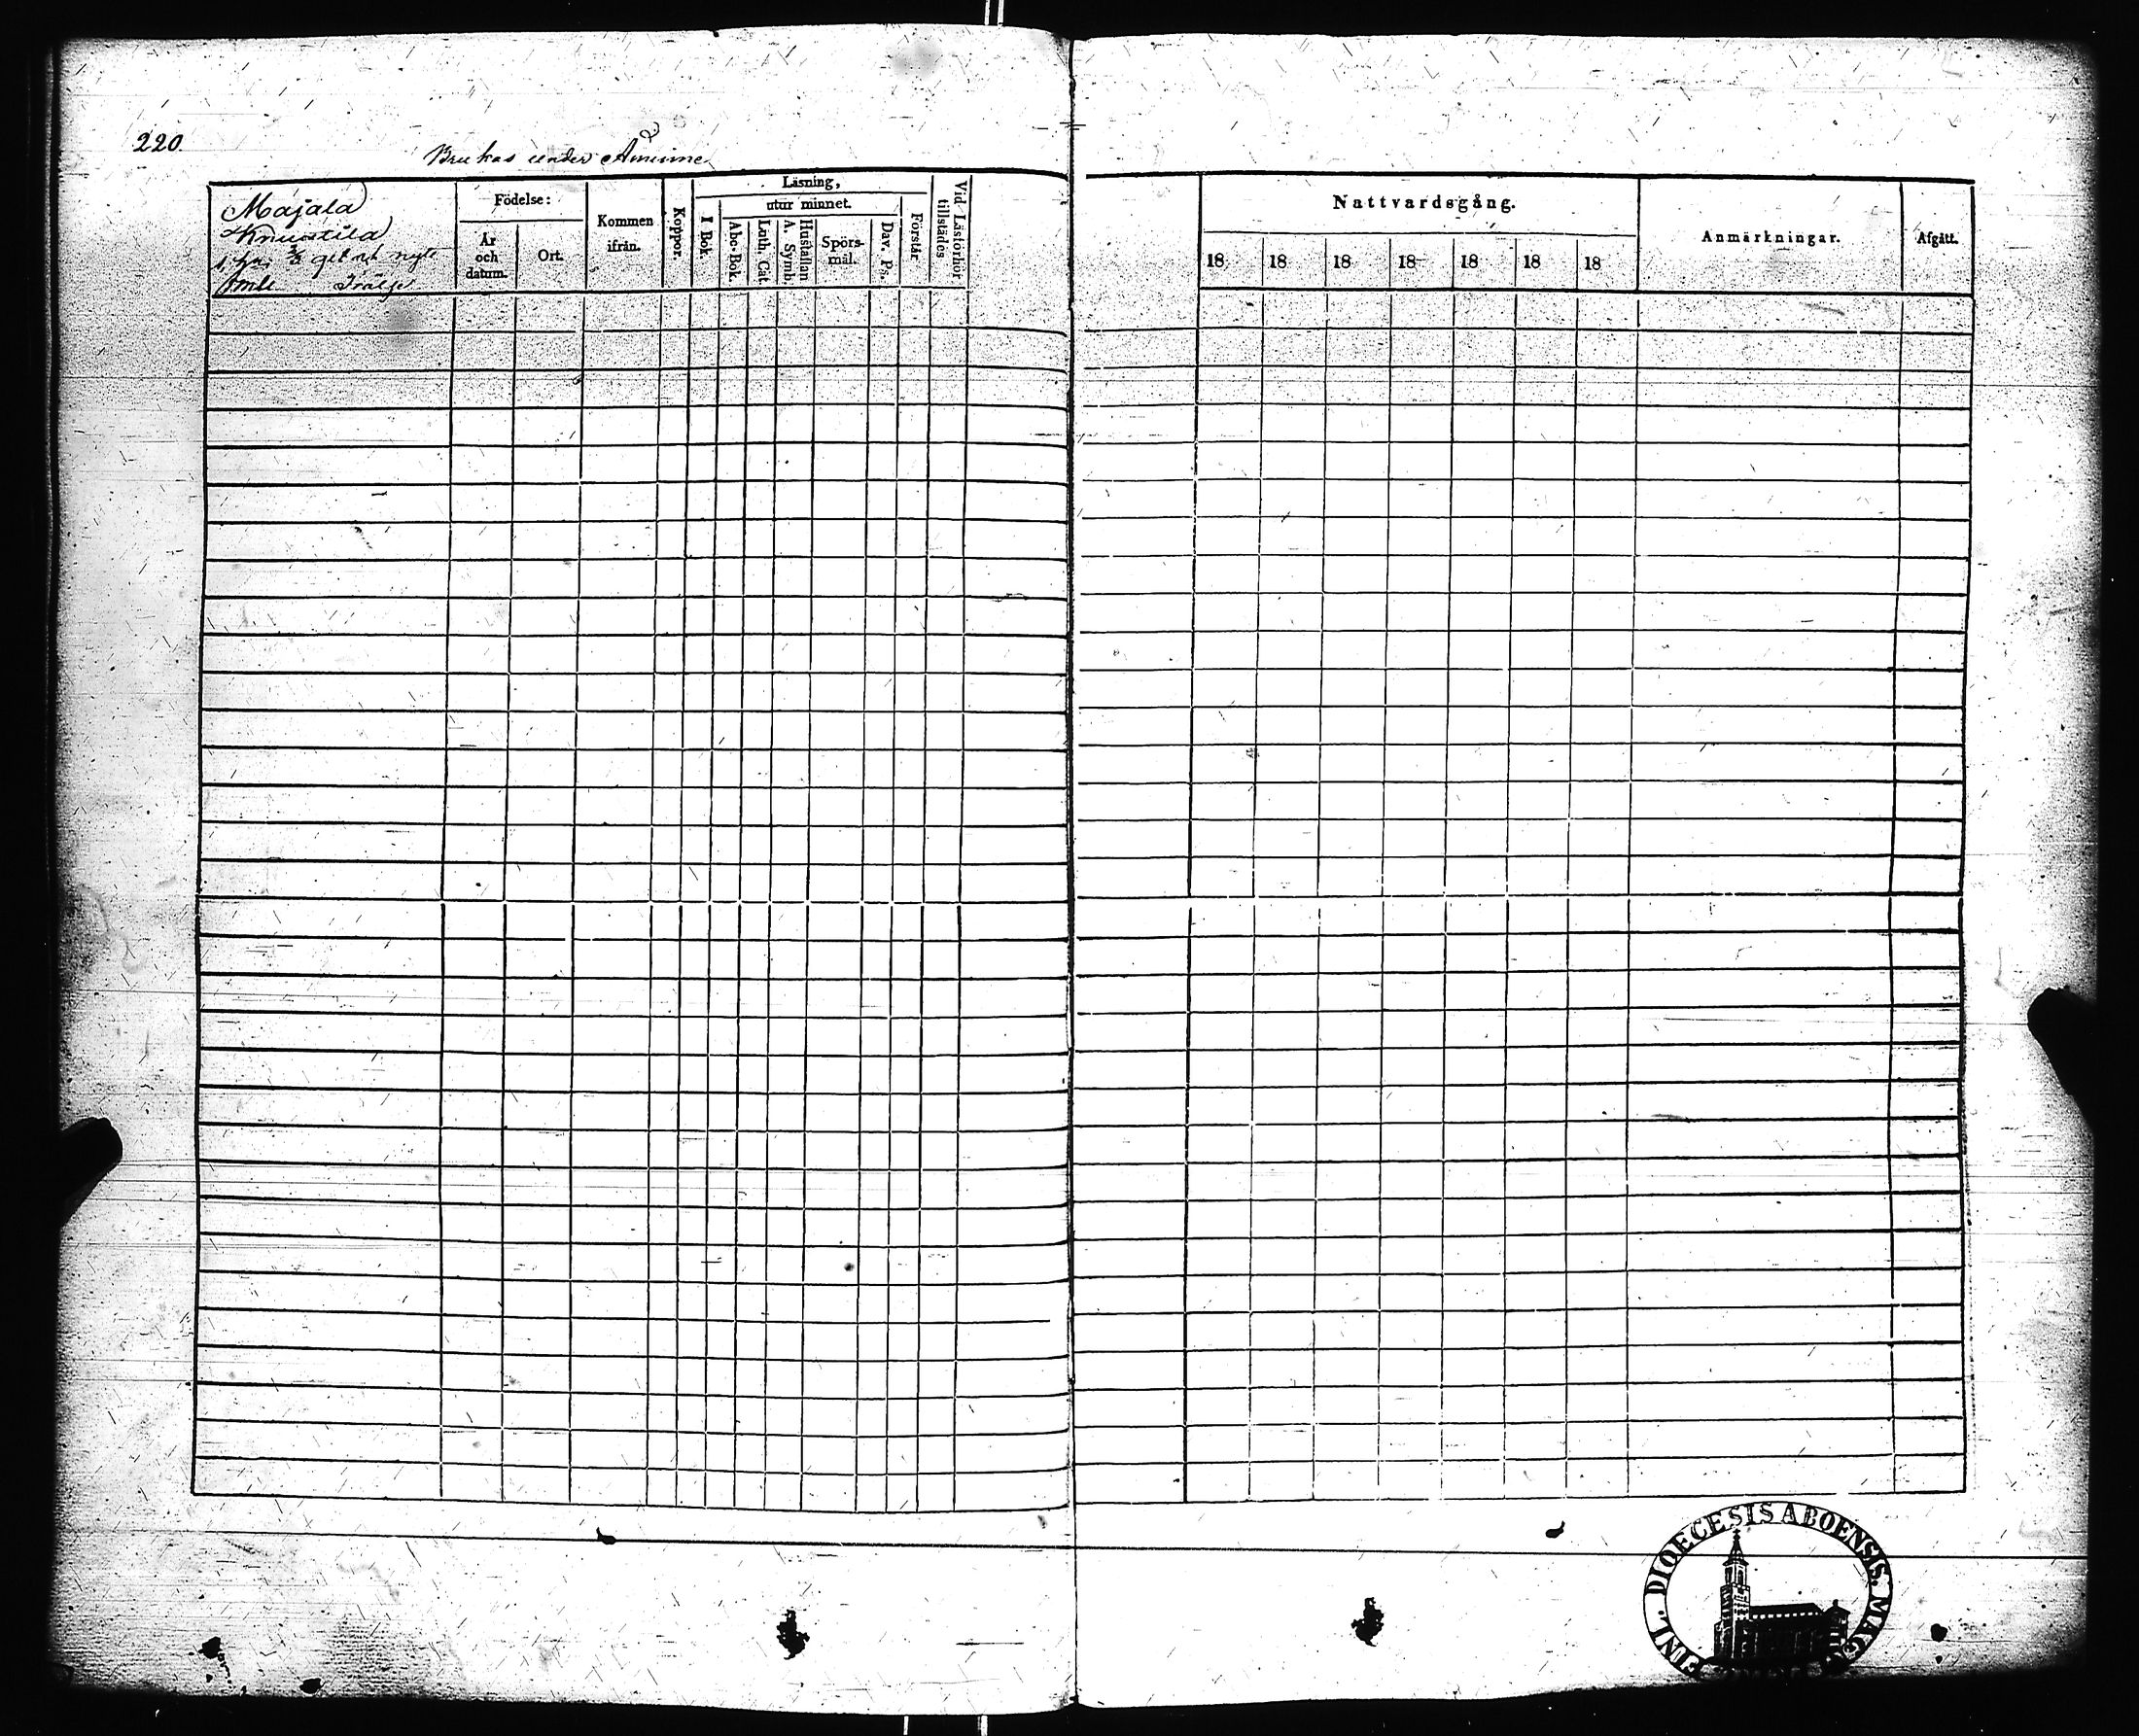 220.
Brukas under Åminne
Majala
Knuutila
gel och nytt
Frälse
Födelse:
År och datum.
Ort.
Kommen ifrån.
Koppor.
Läsning,
utur minnet.
I Bok.
Abc-Bok.
Luth. Cat.
Hustaflan A. Symb.
Spörsmål.
Dav. Ps.
Förstår
Vid Läsförhör tillstädes
Nattvardsgång.
18 18 18 18 18 18 18
Anmärkningar.
Afgått.
FINL. DIOECESIS ABOENSIS. MAG